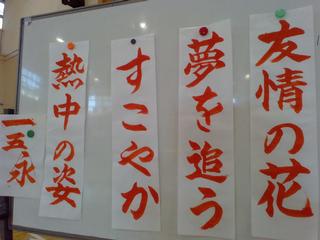 友情の花
夢を追う
すこやか
熱中の姿
一五永